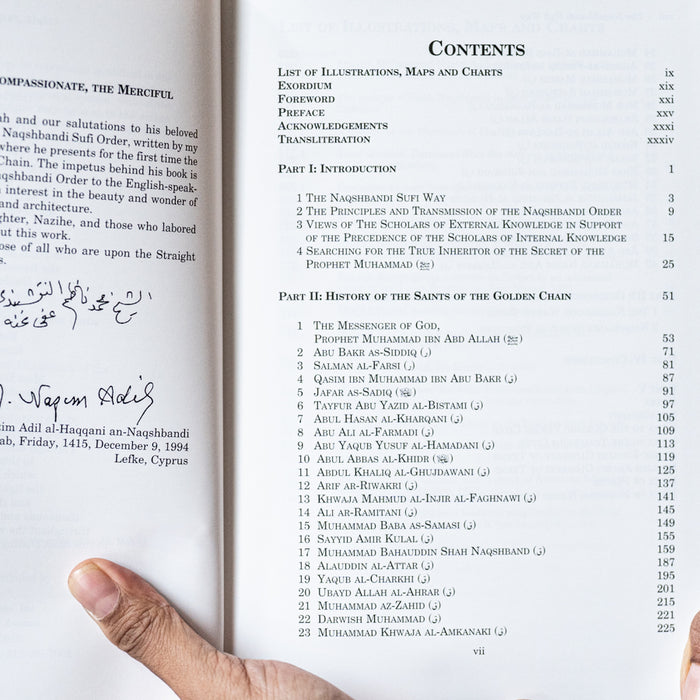 OMPASSIONATE, THE MERCIFUL
ah and our salutations to his beloved
Naqshbandi Sufi Order, written by my
where he presents for the first time the
Chain. The impetus behind his book is
qshbandi Order to the English-speak-
interest in the beauty and wonder of
and architecture.
ghter, Nazihe, and those who labored
out this work.
ose of all who are upon the Straight
s.
الشيخ محمد ناظم
عفي عنه
Nazim Adil
im Adil al-Haqqani an-Naqshbandi
ab, Friday, 1415, December 9, 1994
Lefke, Cyprus
CONTENTS
LIST OF ILLUSTRATIONS, MAPS AND CHARTS ix
EXORDIUM xix
FOREWORD xxi
PREFACE xxv
ACKNOWLEDGEMENTS xxxi
TRANSLITERATION xxxiv
PART I: INTRODUCTION 1
1 THE NAQSHBANDI SUFI WAY 3
2 THE PRINCIPLES AND TRANSMISSION OF THE NAQSHBANDI ORDER 9
3 VIEWS OF THE SCHOLARS OF EXTERNAL KNOWLEDGE IN SUPPORT
OF THE PRECEDENCE OF THE SCHOLARS OF INTERNAL KNOWLEDGE 15
4 SEARCHING FOR THE TRUE INHERITOR OF THE SECRET OF THE
PROPHET MUHAMMAD (ﷺ) 25
PART II: HISTORY OF THE SAINTS OF THE GOLDEN CHAIN 51
1 THE MESSENGER OF GOD,
PROPHET MUHAMMAD IBN ABD ALLAH (ﷺ) 53
2 ABU BAKR AS-SIDDIQ (ق) 71
3 SALMAN AL-FARSI (ق) 81
4 QASIM IBN MUHAMMAD IBN ABU BAKR (ق) 87
5 JAFAR AS-SADIQ 91
6 TAYFUR ABU YAZID AL-BISTAMI (ق) 97
7 ABUL HASAN AL-KHARQANI (ق) 105
8 ABU ALI AL-FARMADI (ق) 109
9 ABU YAQUB YUSUF AL-HAMADANI (ق) 113
10 ABUL ABBAS AL-KHIDR 119
11 ABDUL KHALIQ AL-GHUJDAWANI (ق) 125
12 ARIF AR-RIWAKRI (ق) 137
13 KHWAJA MAHMUD AL-INJIR AL-FAGHNAWI (ق) 141
14 ALI AR-RAMITANI (ق) 145
15 MUHAMMAD BABA AS-SAMASI (ق) 149
16 SAYYID AMIR KULAL (ق) 155
17 MUHAMMAD BAHAUDDIN SHAH NAQSHBAND (ق) 159
18 ALAUDDIN AL-ATTAR (ق) 187
19 YAQUB AL-CHARKHI (ق) 195
20 UBAYD ALLAH AL-AHRAR (ق) 201
21 MUHAMMAD AZ-ZAHID (ق) 215
22 DARWISH MUHAMMAD (ق) 221
23 MUHAMMAD KHWAJA AL-AMKANAKI (ق) 225
vii